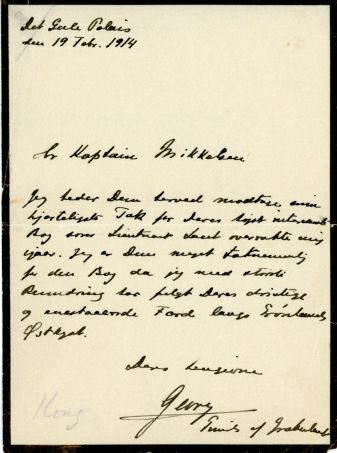 Det Gule Palais
den 19 Febr. 1914
Hr Kaptain Mikkelsen
Jeg beder Dem herved modtage min
hjerteligste Tak for Deres højst interessante
Bog som Lieutnant Laut overrakte mig
igaar. Jeg er Dem meget taknemmelig
for den Bog da jeg med største
Beundring har fulgt Deres dristige
og enestaaende Færd langs Grønlands
Østkyst.
Deres hengivne
Georg
Prinds af Grækenland
Kong